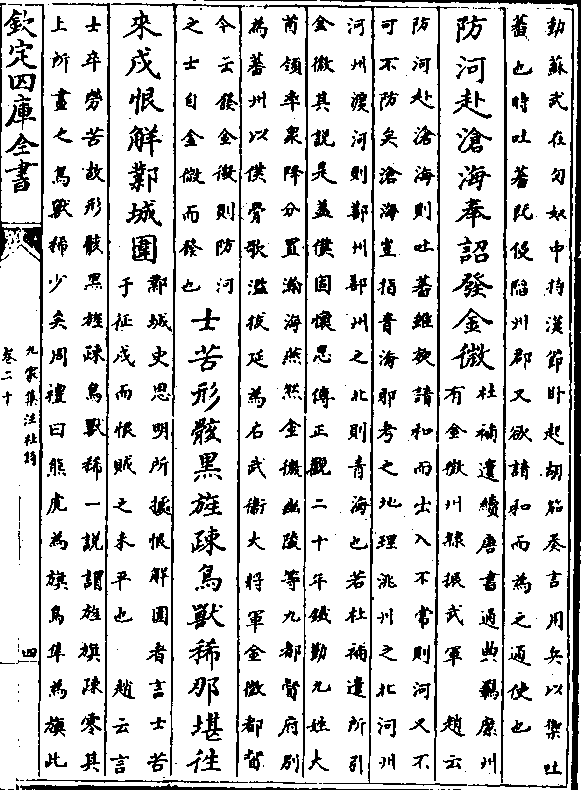 勤蘇武在匈奴中持漢節卧起胡笳奏言用兵以禦吐
蕃也時吐蕃既侵陷州郡又欲請和而為之通使也
防河赴滄海奉詔發金微
杜補遺續唐書通典羈縻州
有金微州隸振武軍 趙云
防河赴滄海則吐蕃雖數請和而出入不常則河又不
可不防矣滄海豈指青海耶考之地理洮州之北河州
河州渡河則鄯州鄯州之北則青海也若杜補遺所引
金微其說是盖僕固懷恩傳正觀二十年鐵勒九姓大
酋領率衆降分置瀚海燕然金微幽陵等九都督府別
為蕃州以僕骨歌濫拔延為右武衛大將軍金微都督
今云發金微則防河
之士自金微而發也
士苦形骸黑旌疎鳥獸稀那堪往
來戍恨解鄴城圍
鄴城史思明所據恨解圍者言士苦
于征戍而恨賊之未平也 趙云言
士卒勞苦故形骸黑旌疎鳥獸稀一説謂旌旗疎寒其
上所畫之鳥獸稀少矣周禮曰熊虎為旗鳥隼為旟此
欽定四庫全書
九家集注杜詩
卷二十
四